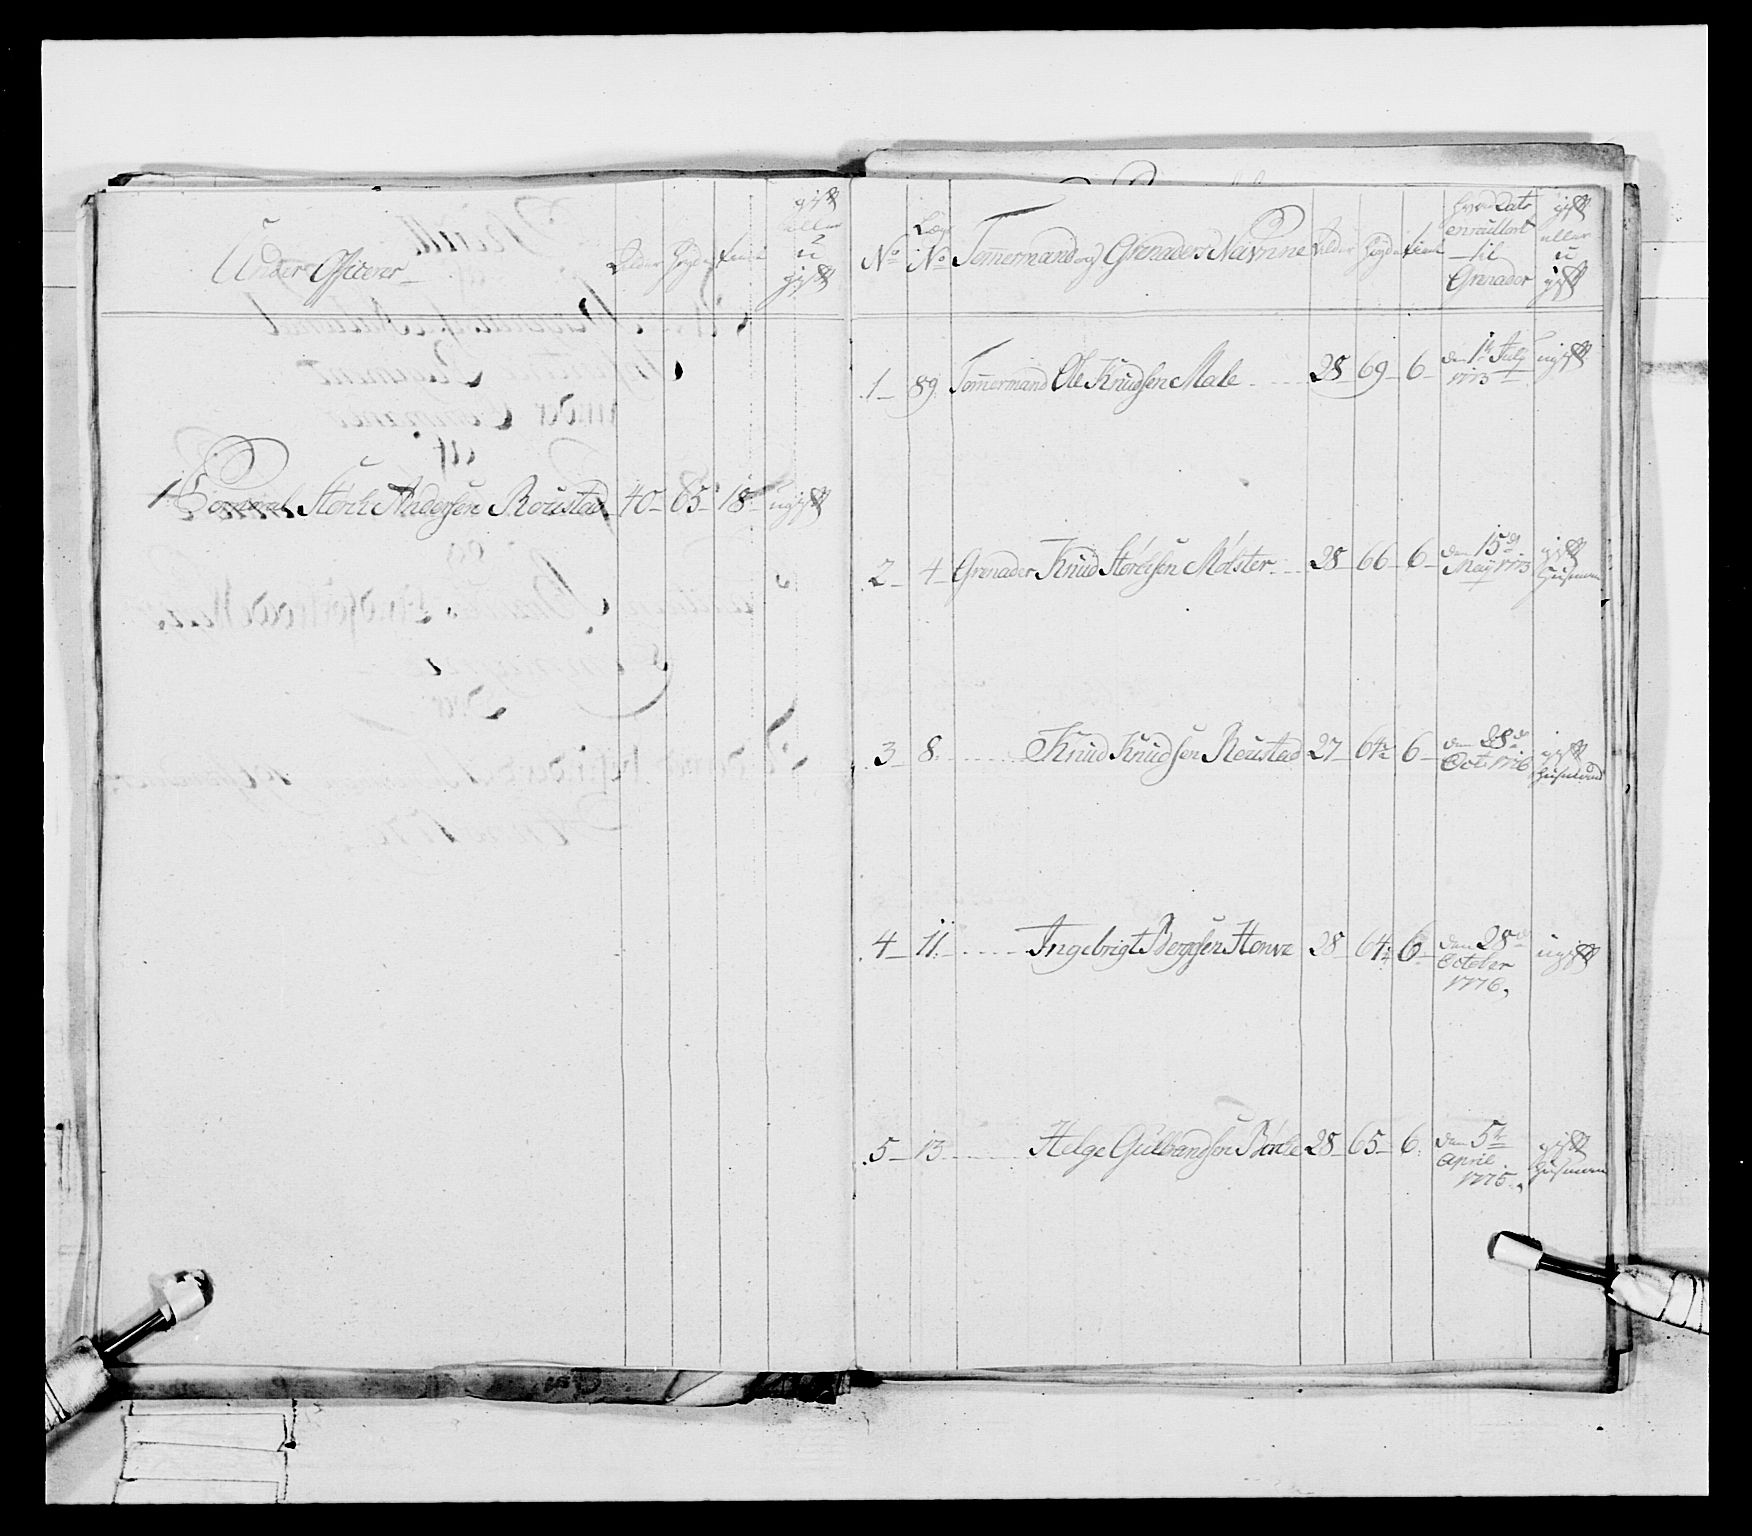 Under Officerer
Alder
Høyde
tient
gift
eller
u
gift
1 Corporal Størck Andersen Roustad 40 65 18 ugift
No
Læg
No
Tømmermand og Grenaders Navnne
Alder
Høyde
tient
hvor Dato
enroullert
til
Grenader
gift
eller
u
gift
1 89 Tømmermand Ole Knudsen Male 28 69 6 den 1te July
1773
ugift
2 4 Grenader Knud Størcksen Mølster 28 66 6 den 15de
May 1773
gift
Husmand
3 8 Knud Knudsen Reustad 27 64½ 6 den 28de
Oct. 1776
gift
Husmand
4 11 Ingebrigt Bergesen Honve 28 64½ 6 den 28de
October
1776
ugift
5 13 Helge Gulbrandsen Børcke 28 65 6 den 5te
April
1775
gift
Husmand